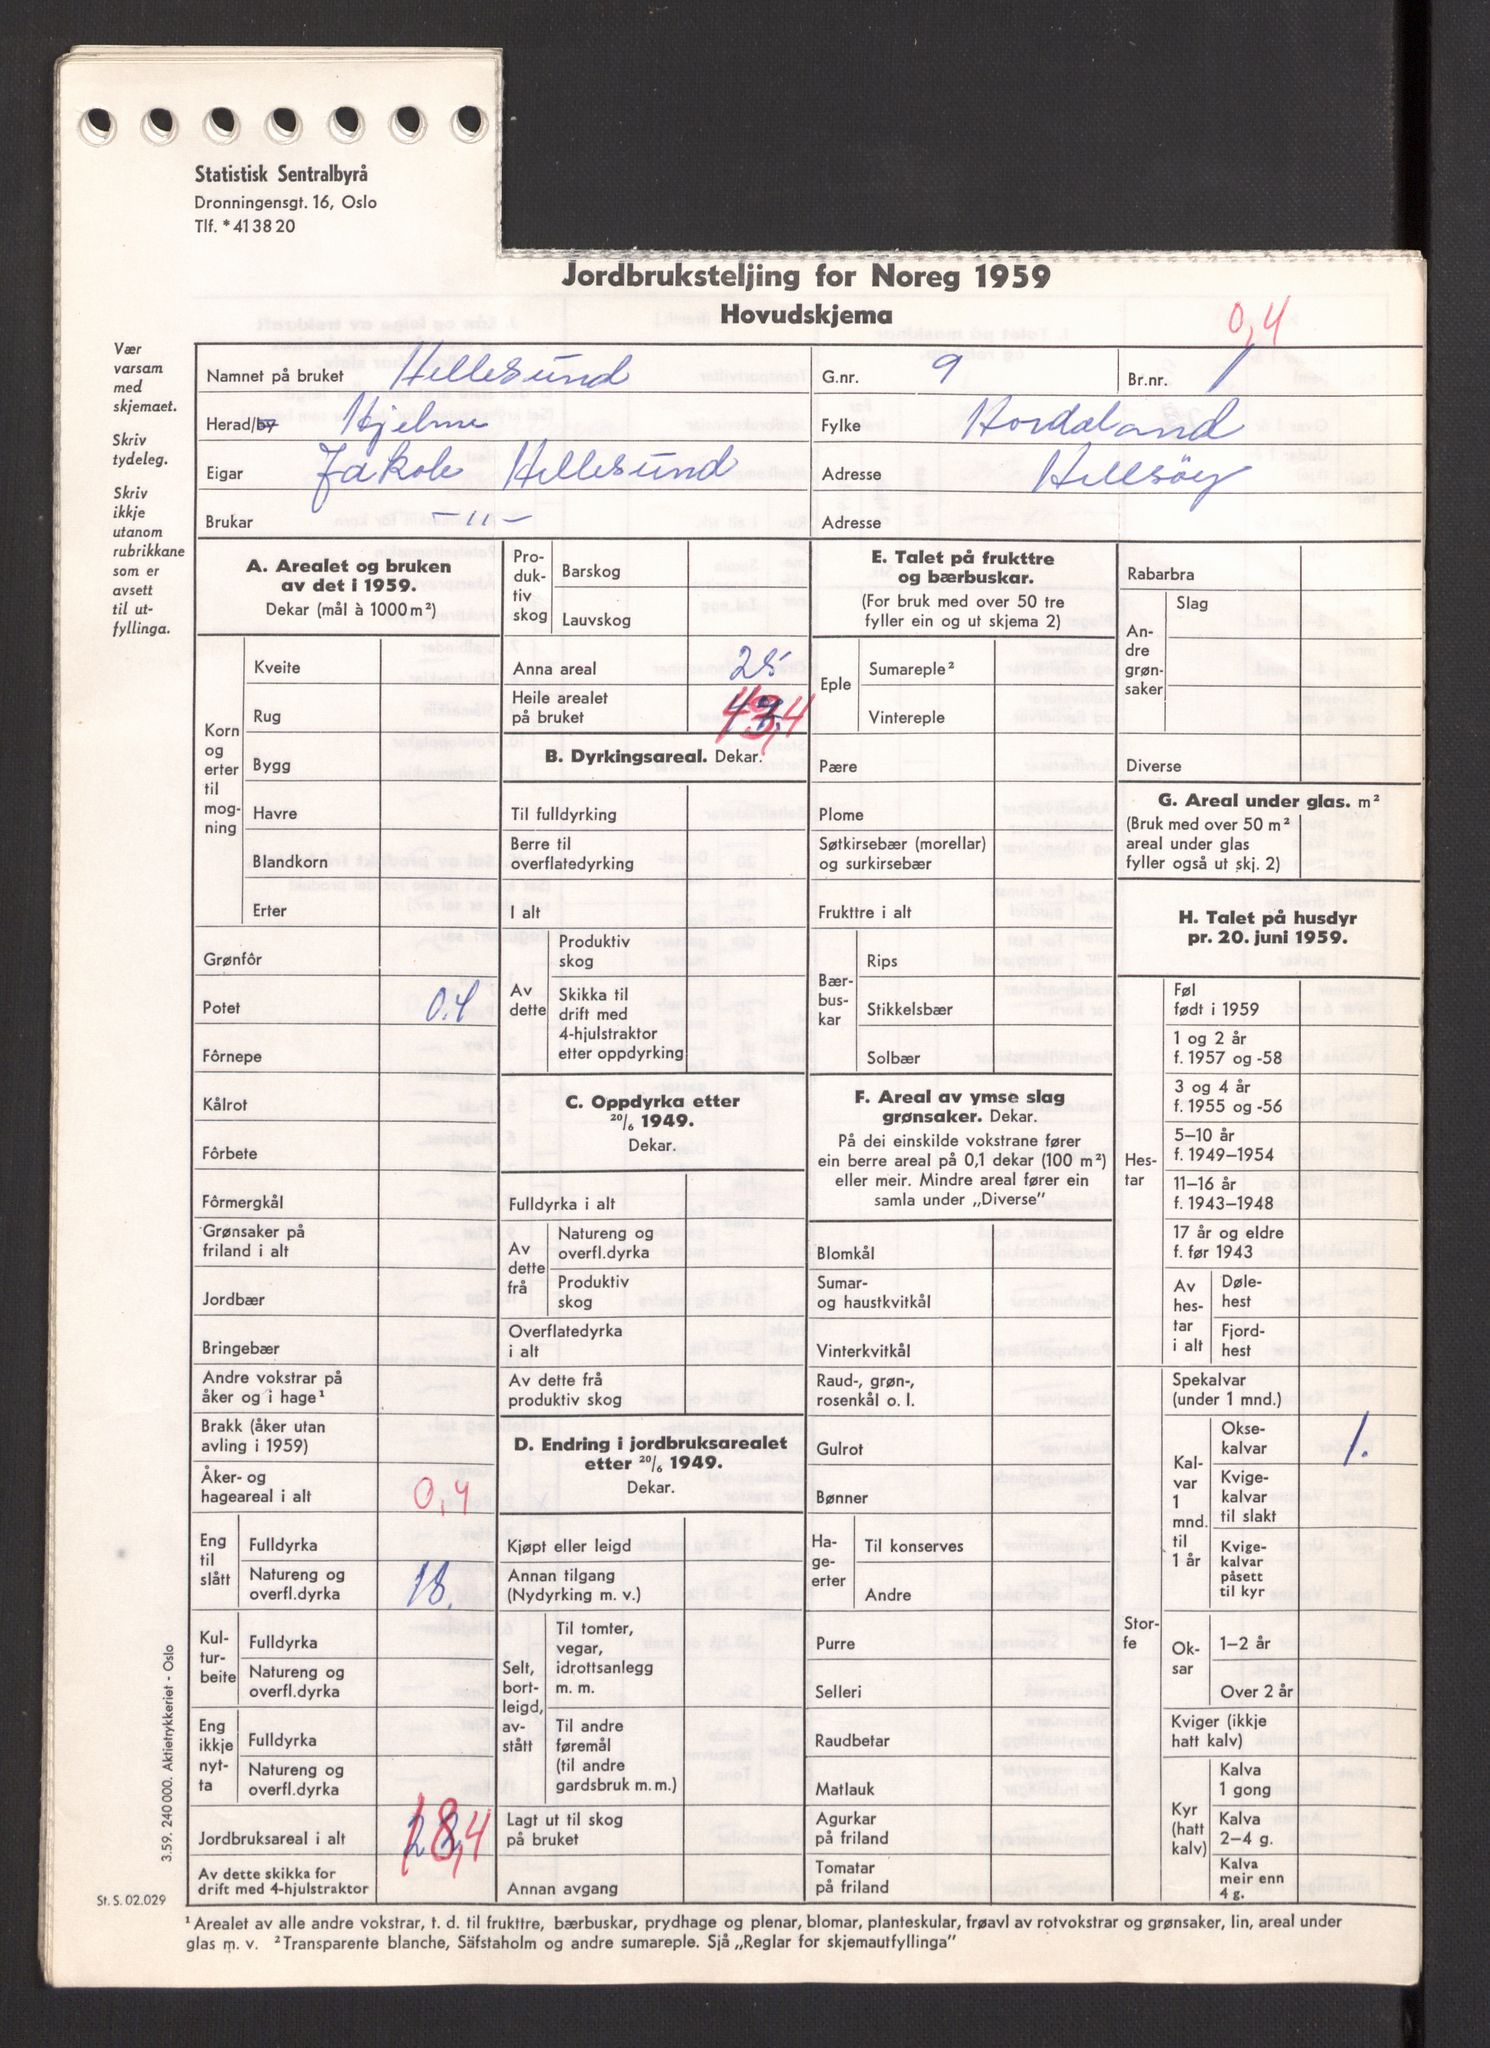 Statistisk Sentralbyrå
Dronningensgt. 16, Oslo
Tlf. * 41 38 20
Jordbruksteljing for Noreg 1959
Hovudskjema
0,4
Vær
varsam
med
skjemaet.
Skriv
tydeleg.
Skriv
ikkje
utanom
rubrikkane
som er
avsett
til ut-
fyllinga.
Namnet på bruket Hellesund G.nr. 9 Br.nr. 1
Herad/by Hjelme Fylke Hordaland
Eigar Jakob Hellesund Adresse Hellsöy
Brukar -"- Adresse
A. Arealet og bruken
av det i 1959.
Dekar (mål à 1000 m²)
Korn
og
erter
til
mog-
ning
Kveite
Rug
Bygg
Havre
Blandkorn
Erter
Grønfôr
Potet 0.4
Fôrnepe
Kålrot
Fôrbete
Fôrmergkål
Grønsaker på
friland i alt
Jordbær
Bringebær
Andre vokstrar på
åker og i hage¹
Brakk (åker utan
avling i 1959)
Åker- og
hageareal i alt 0,4
Eng
til
slått
Fulldyrka
Natureng og
overfl.dyrka 18.
Kul-
tur-
beite
Fulldyrka
Natureng og
overfl.dyrka
Eng
ikkje
nyt-
ta
Fulldyrka
Natureng og
overfl.dyrka
Jordbruksareal i alt 18,4
Av dette skikka for
drift med 4-hjulstraktor
Pro-
duk-
tiv
skog
Barskog
Lauvskog
Anna areal 25
Heile arealet
på bruket 43,4
B. Dyrkingsareal. Dekar.
Til fulldyrking
Berre til
overflatedyrking
I alt
Av
dette
Produktiv
skog
Skikka til
drift med
4-hjulstraktor
etter oppdyrking
C. Oppdyrka etter
20/6 1949.
Dekar.
Fulldyrka i alt
Av
dette
frå
Natureng og
overfl.dyrka
Produktiv
skog
Overflatedyrka
i alt
Av dette frå
produktiv skog
D. Endring i jordbruksarealet
etter 20/6 1949.
Dekar.
Kjøpt eller leigd
Annan tilgang
(Nydyrking m. v.)
Selt,
bort-
leigd,
av-
stått
Til tomter,
vegar,
idrottsanlegg
m. m.
Til andre
føremål
(til andre
gardsbruk m. m.)
Lagt ut til skog
på bruket
Annan avgang
E. Talet på frukttre
og bærbuskar.
(For bruk med over 50 tre
fyller ein og ut skjema 2)
Eple
Sumareple²
Vintereple
Pære
Plome
Søtkirsebær (morellar)
og surkirsebær
Frukttre i alt
Bær-
bus-
kar
Rips
Stikkelsbær
Solbær
F. Areal av ymse slag
grønsaker. Dekar.
På dei einskilde vokstrane fører
ein berre areal på 0,1 dekar (100 m²)
eller meir. Mindre areal fører ein
samla under „Diverse”
Blomkål
Sumar-
og haustkvitkål
Vinterkvitkål
Raud-, grøn-,
rosenkål o. l.
Gulrot
Bønner
Ha-
ge-
erter
Til konserves
Andre
Purre
Selleri
Raudbetar
Matlauk
Agurkar
på friland
Tomatar
på friland
Rabarbra
An-
dre
grøn-
saker
Slag
Diverse
G. Areal under glas. m²
(Bruk med over 50 m²
areal under glas
fyller også ut skj. 2)
H. Talet på husdyr
pr. 20. juni 1959.
Hes-
tar
Føl
født i 1959
1 og 2 år
f. 1957 og -58
3 og 4 år
f. 1955 og -56
5–10 år
f. 1949–1954
11–16 år
f. 1943–1948
17 år og eldre
f. før 1943
Av
hes-
tar
i alt
Døle-
hest
Fjord-
hest
Stor-
fe
Spekalvar
(under 1 mnd.)
Kal-
var
1
mnd.
til
1 år
Okse-
kalvar 1.
Kvige-
kalvar
til slakt
Kvige-
kalvar
påsett
til kyr
Ok-
sar
1–2 år
Over 2 år
Kviger (ikkje
hatt kalv)
Kyr
(hatt
kalv)
Kalva
1 gong
Kalva
2–4 g.
Kalva
meir enn
4 g.
3.59. 240 000. Aktietrykkeriet - Oslo
St. S. 02.029
¹ Arealet av alle andre vokstrar, t. d. til frukttre, bærbuskar, prydhage og plenar, blomar, planteskular, frøavl av rotvokstrar og grønsaker, lin, areal under
glas m. v. ² Transparente blanche, Säfstaholm og andre sumareple. Sjå „Reglar for skjemautfyllinga”